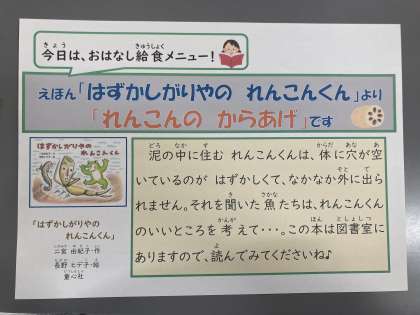 今日は、おはなし給食メニュー!
えほん「はずかしがりやの れんこんくん」より
「れんこんの からあげ」です
はずかしがりやの
れんこんくん
「はずかしがりやの
れんこんくん」
二宮 由紀子・作
長野 ヒデ子・絵
童心社
泥の中に住む れんこんくんは、体に穴が空
いているのが はずかしくて、なかなか外に出ら
れません。それを聞いた魚たちは、れんこんくん
のいいところを 考えて・・・。この本は図書室に
ありますので、読んでみてくださいね♪